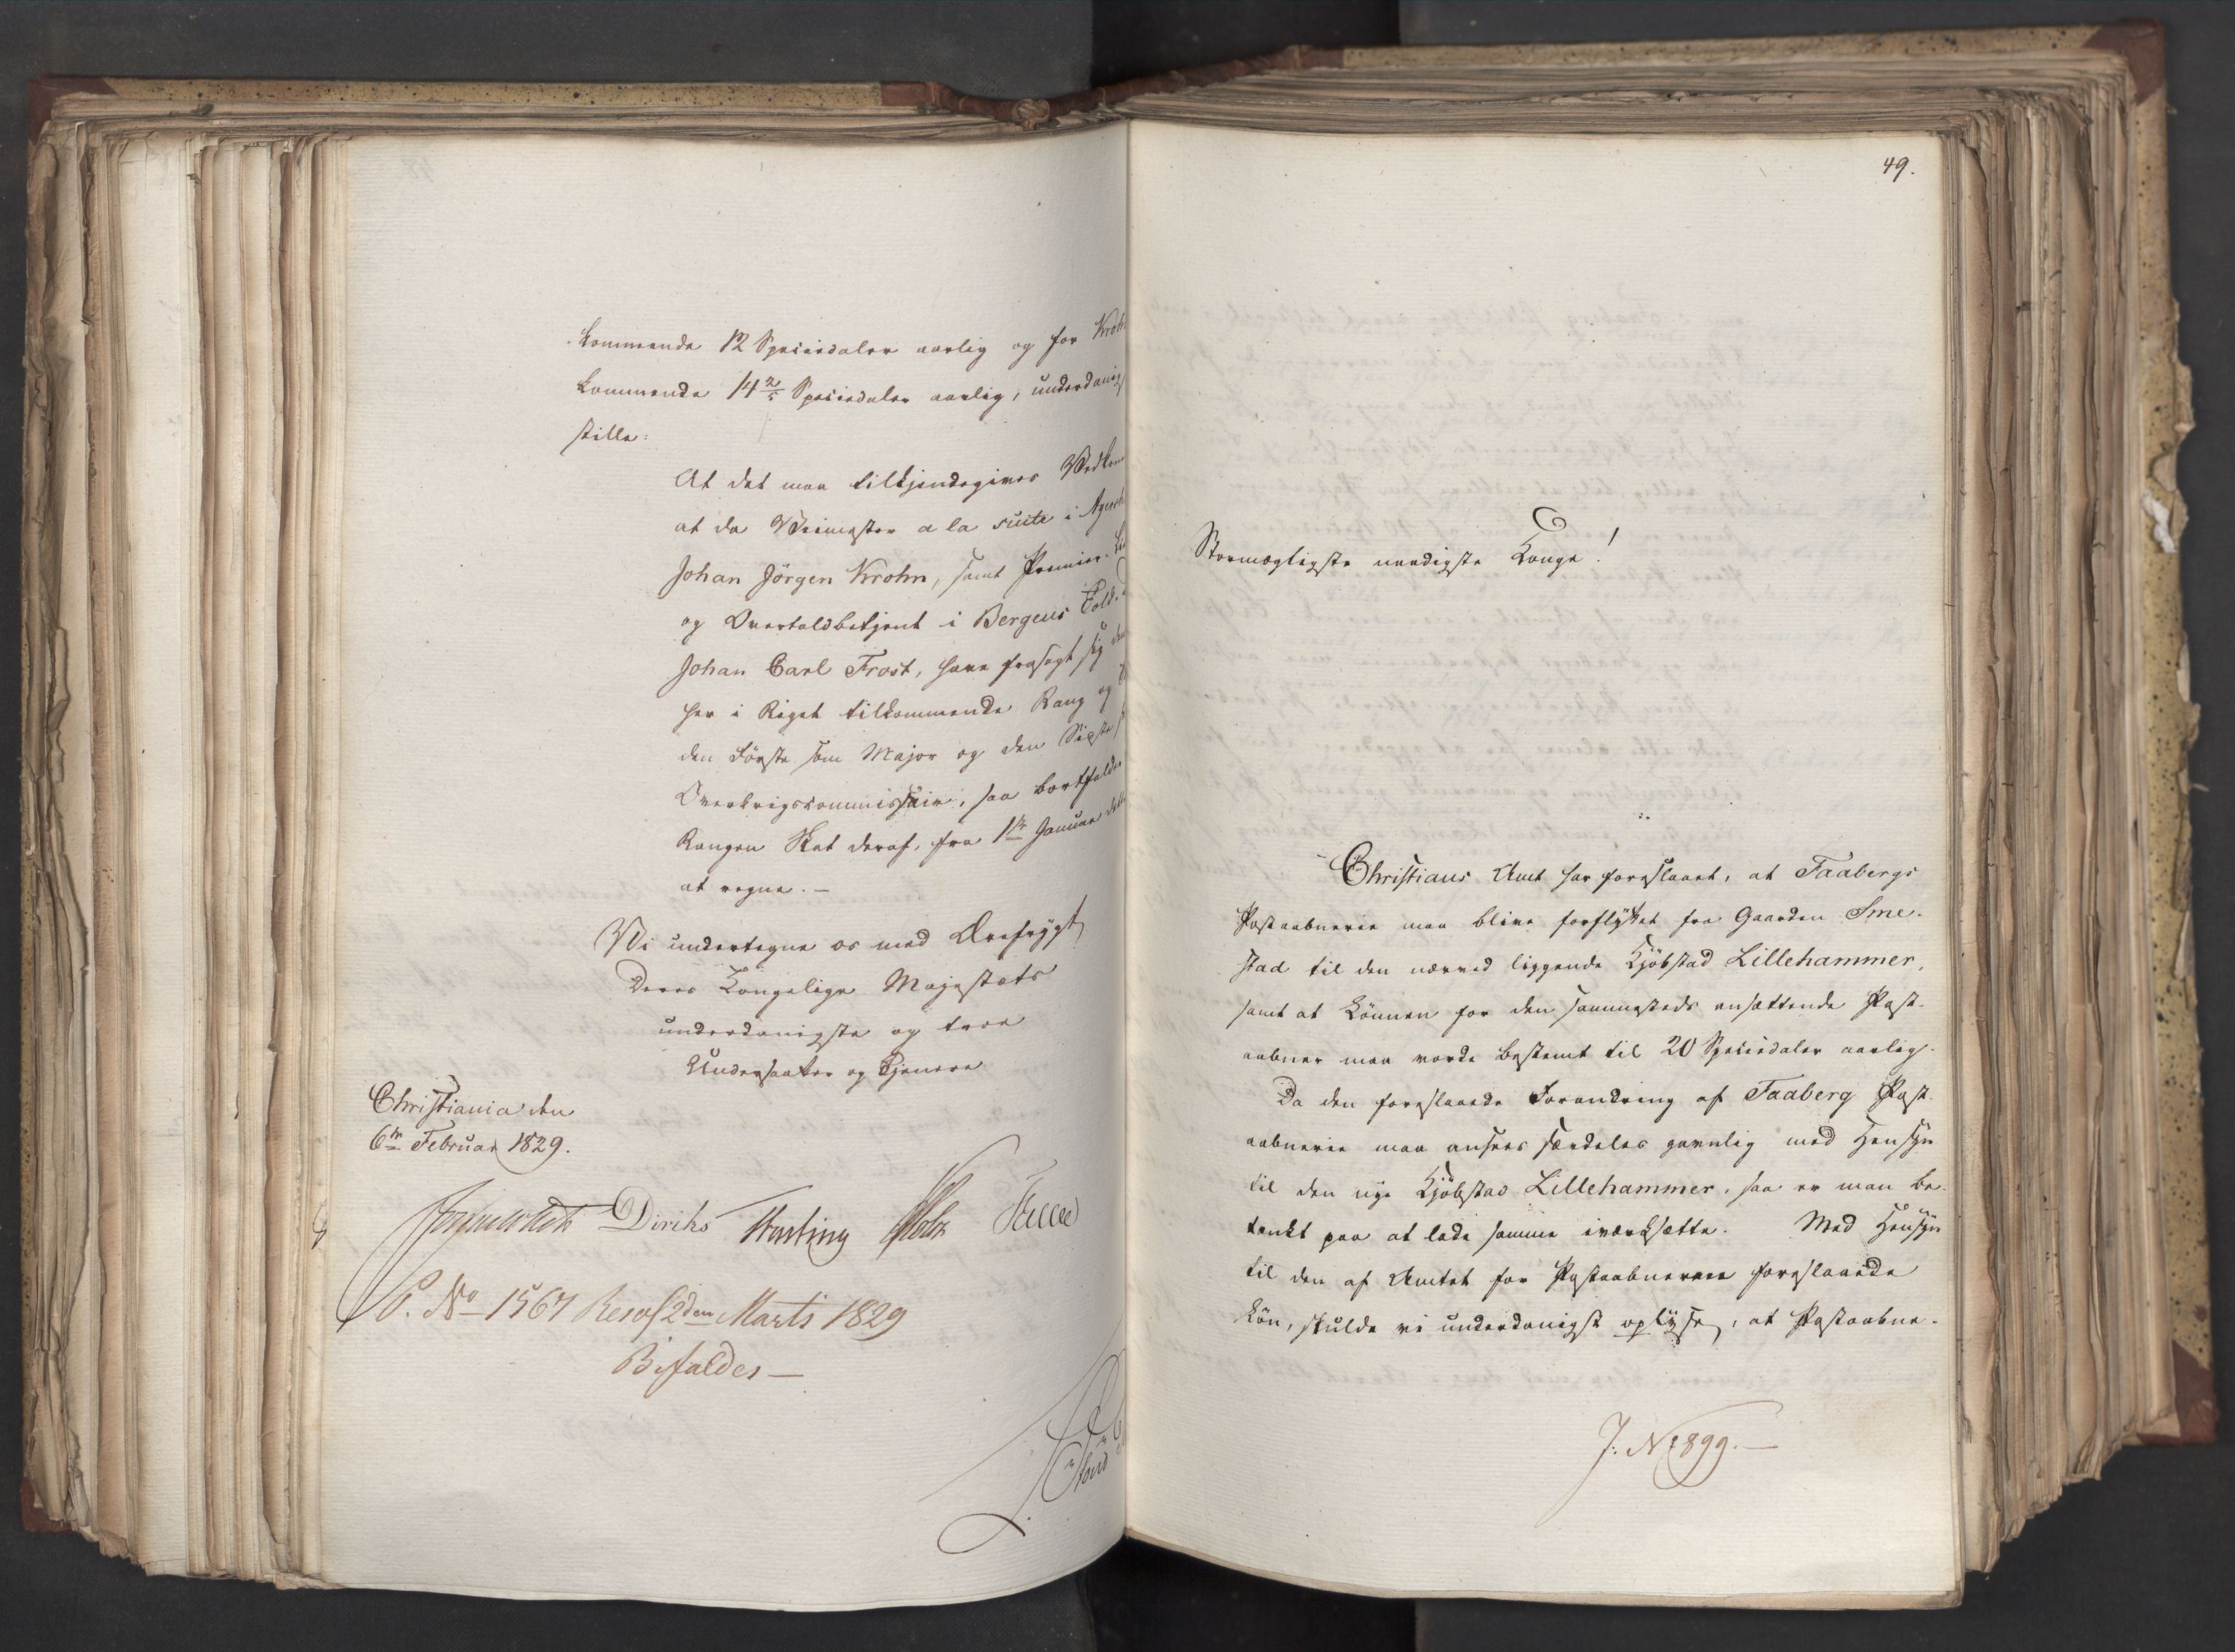 kommende 12 Speciedaler aarlig og for Kroh
kommende 14 2/5 Speciedaler aarlig, underdanig
stille:
At det maa tilkjendegives Vedkom
at da Veimester a la suite i Agersh
Johan Jörgen Krohn, samt Premier-Li
og Overtoldbetjent i Bergens Told-
Johan Carl Frost, have frasagt sig den
her i Riget tilkommende Rang og
den Förste som Major og den Sidste
Overkrigscommissair, saa bortfalder
Rangen Skat deraf, fra 1ste Januar dette
at regne. —
Vi undertegne os med Ærefrygt
Deres Kongelige Majestæts
underdanigste og troe
Undersaatter og Tjenere
Christiania den
6te Februar 1829.
Diriks Motzfeldt Holst
P. No 1567 Resol 2den Marts 1829
Bifaldes —
49.
Stormægtigste naadigste Konge!
Christians Amt har foreslaaet, at Faabergs
Postaabnerie maa blive forflyttet fra Gaarden Sme-
stad til den nærved liggende Kjöbstad Lillehammer,
samt at Lönnen for den sammesteds ansættende Post-
aabner maa vorde bestemt til 20 Speciedaler aarlig.
Da den foreslaaede Forandring af Faaberg Post-
aabnerie maa ansees særdeles gavnlig med Hensyn
til den nye Kjöbstad Lillehammer, saa er man be-
tænkt paa at lade samme iværksætte. Med Hensyn
til den af Amtet for Postaabneren foreslaaede
Lön, skulde vi underdanigst oplyse, at Postaabne-
J: No 899. —